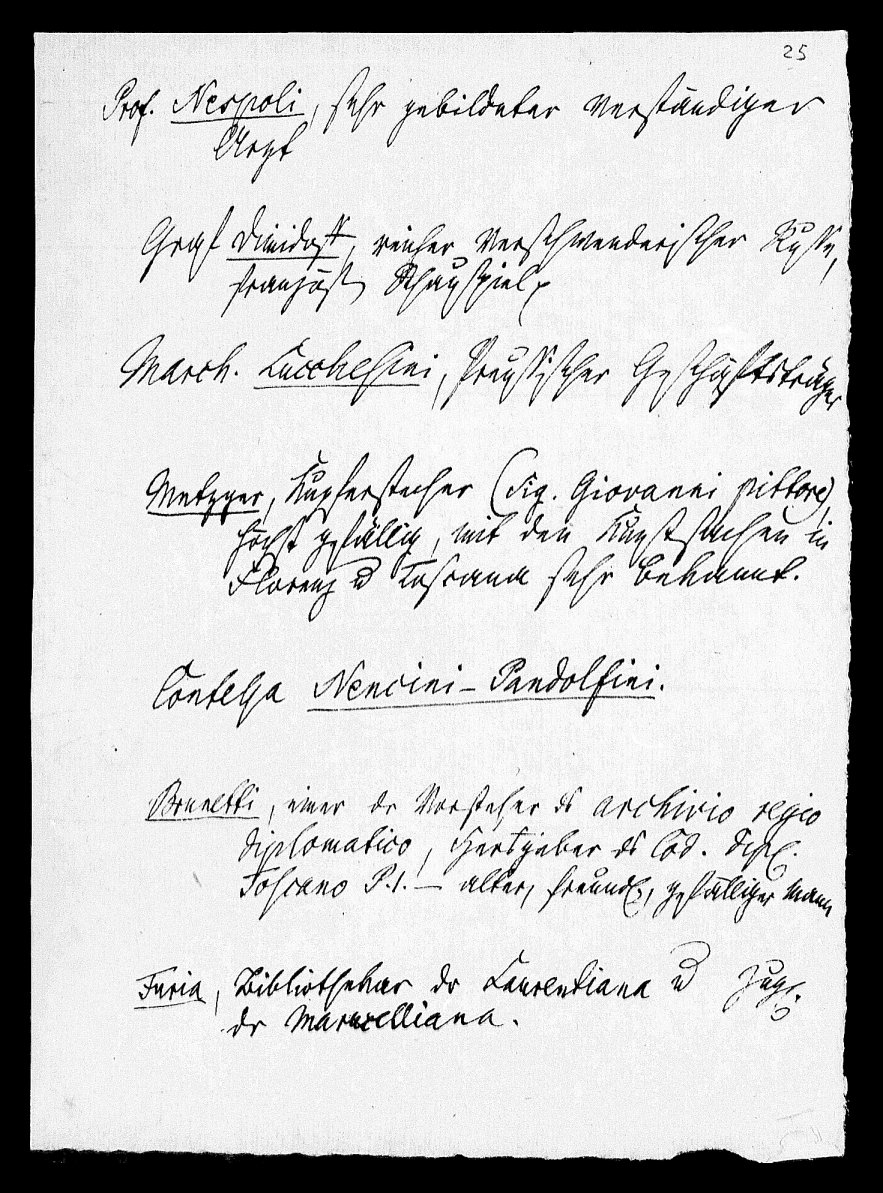 25
Prof. Nespoli, sehr gebildeter verständiger
Arzt
Graf Dimidoff, reicher verschwenderischer Russe,
französ. Schauspiel.
March. Lucchesini, Preussischer Geschäftsträger
Metzger, Kupferstecher (Sig. Giovanni pittore),
höchst gefällig, mit den Kunstsachen in
Florenz u Toscana sehr bekannt.
Contessa Nencini-Pandolfini.
Brunetti, einer dr Vorsteher ds archivio regio
diplomatico, Hersgeber ds Cod. Dipl.
Toscano P.1. — alter, freundl, gefälliger Mann
Furia, Bibliothekar dr Laurentiana u zugl.
dr Marucelliana.